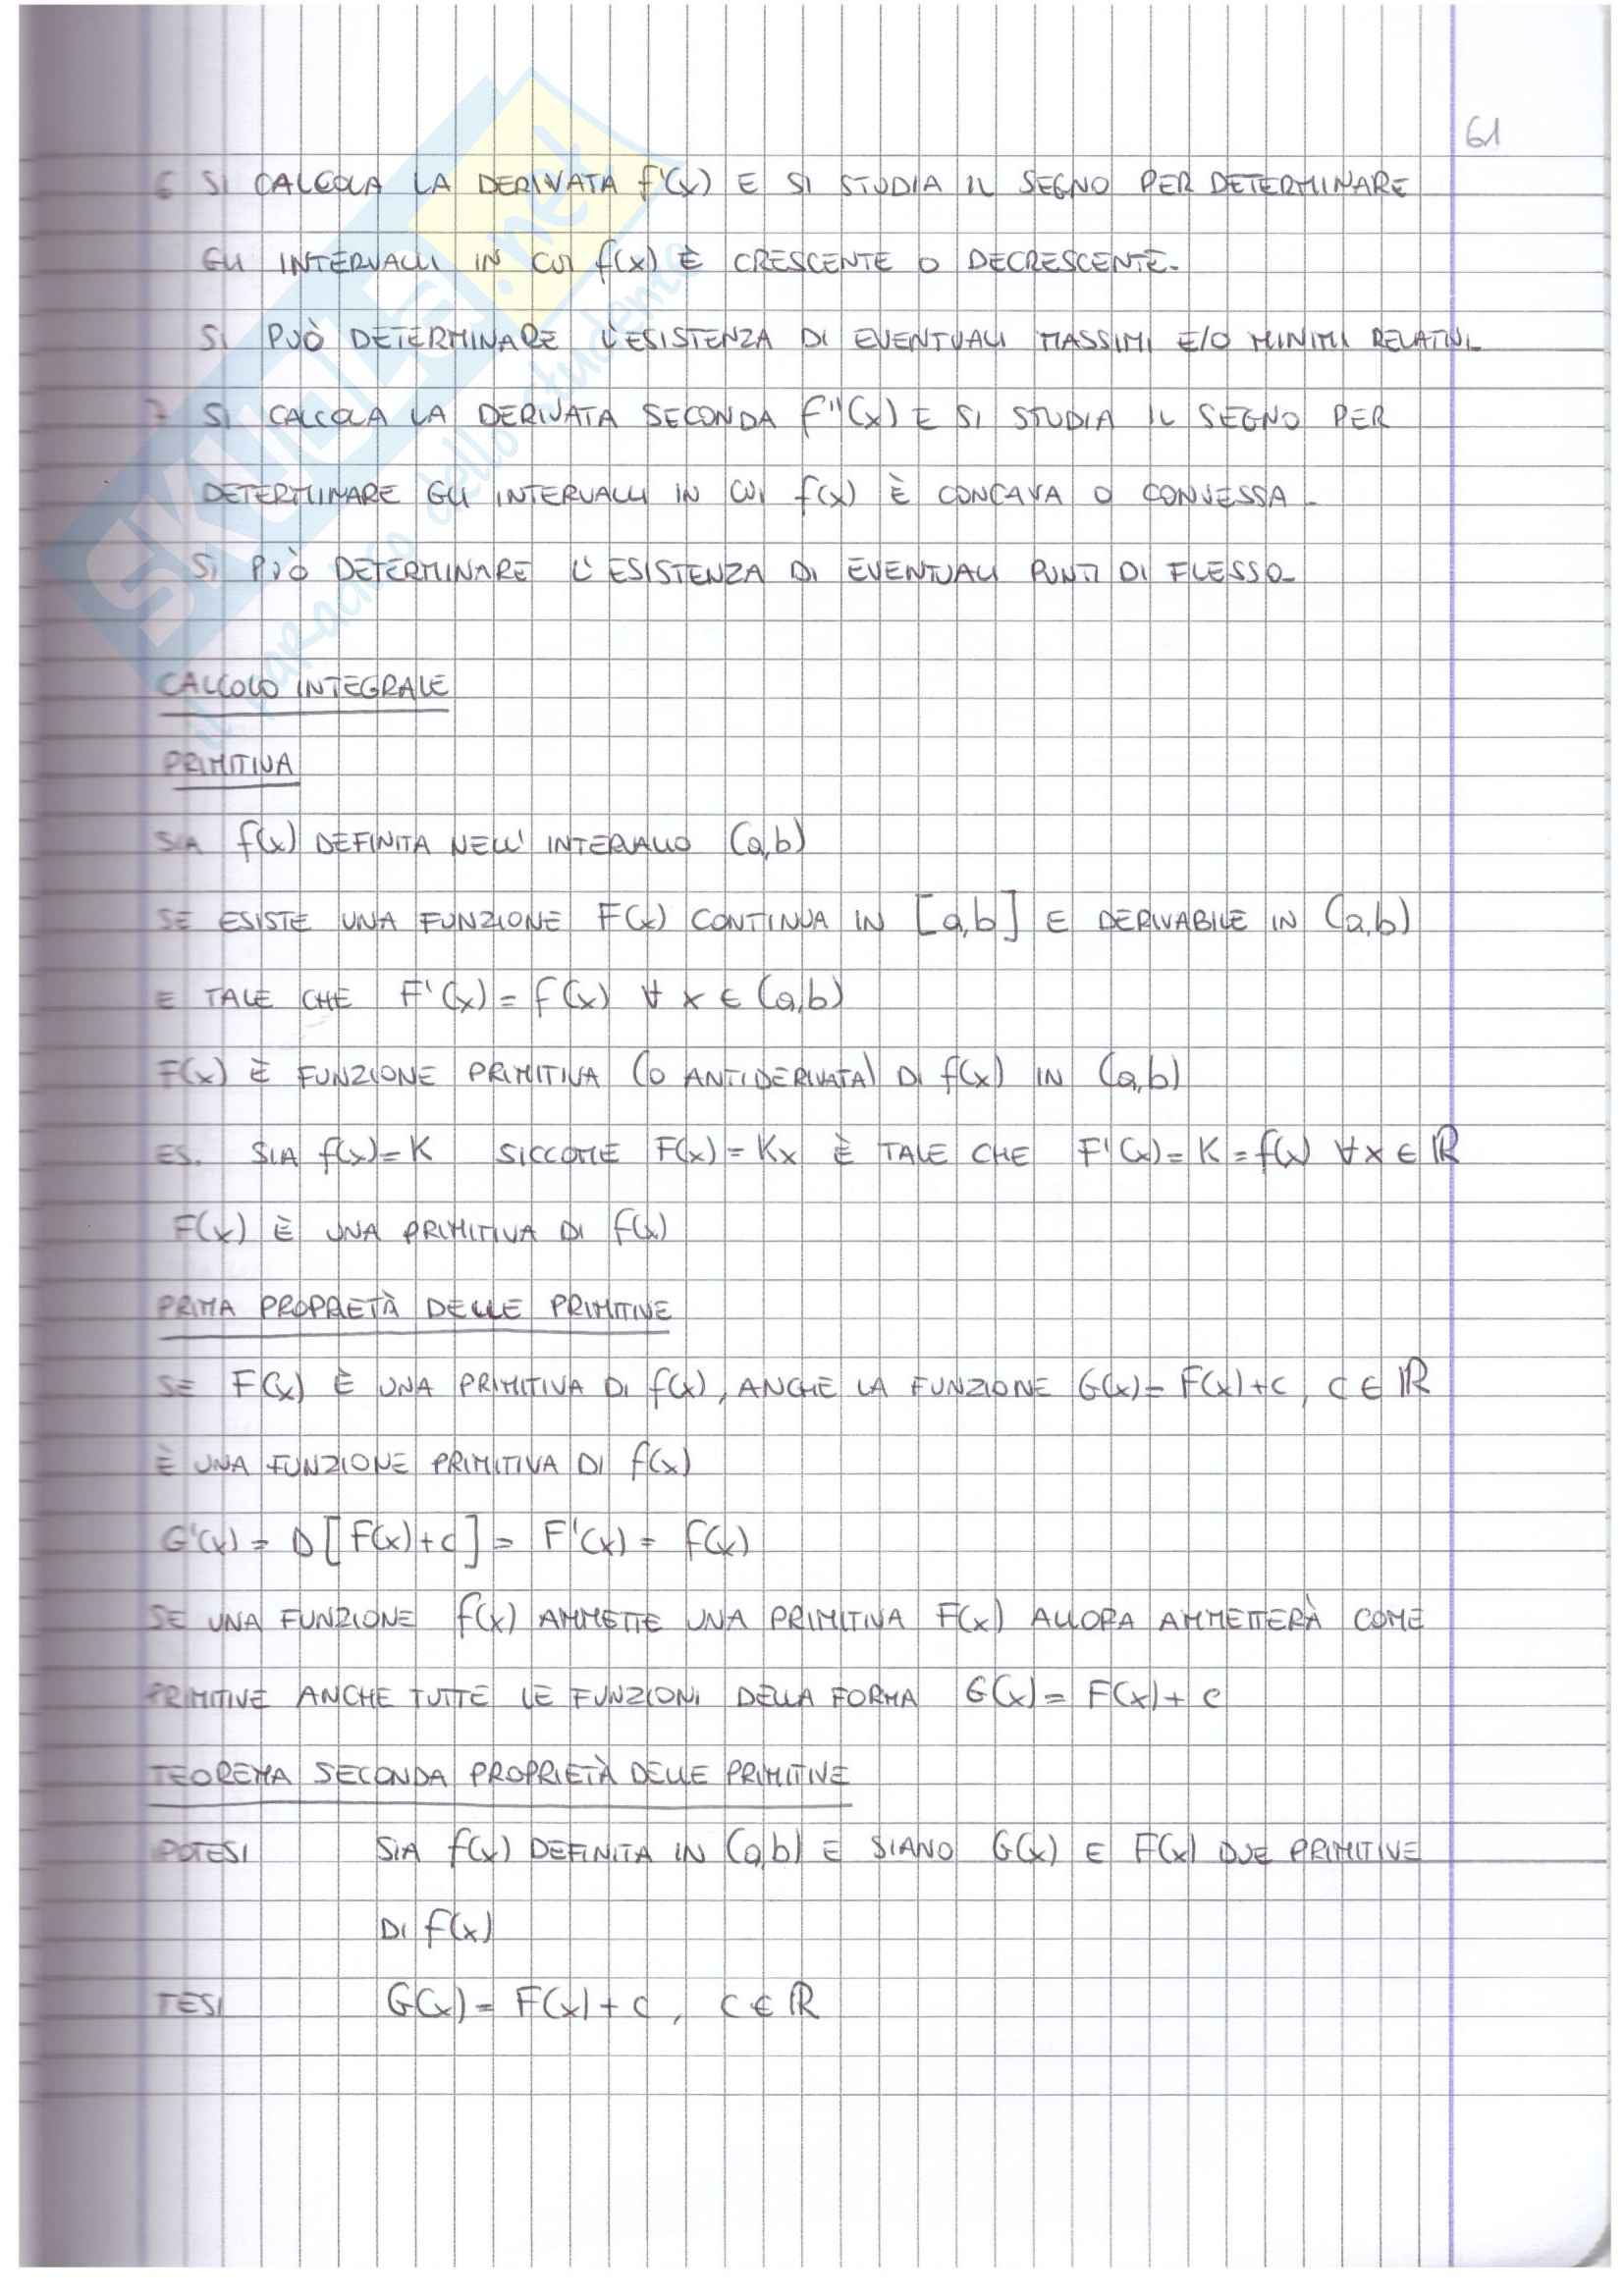 61
6 SI CALCOLA LA DERIVATA f'(x) E SI STUDIA IL SEGNO PER DETERMINARE
GLI INTERVALLI IN CUI f(x) È CRESCENTE O DECRESCENTE.
SI PUÒ DETERMINARE L'ESISTENZA DI EVENTUALI MASSIMI E/O MINIMI RELATIVI.
7 SI CALCOLA LA DERIVATA SECONDA f''(x) E SI STUDIA IL SEGNO PER
DETERMINARE GLI INTERVALLI IN CUI f(x) È CONCAVA O CONVESSA.
SI PUÒ DETERMINARE L'ESISTENZA DI EVENTUALI PUNTI DI FLESSO.
CALCOLO INTEGRALE
PRIMITIVA
SIA f(x) DEFINITA NELL'INTERVALLO (a,b)
SE ESISTE UNA FUNZIONE F(x) CONTINUA IN [a,b] E DERIVABILE IN (a,b)
E TALE CHE F'(x) = f(x) ∀ x ∈ (a,b)
F(x) È FUNZIONE PRIMITIVA (O ANTIDERIVATA) DI f(x) IN (a,b)
ES. SIA f(x)=K SICCOME F(x)=Kx È TALE CHE F'(x)=K=f(x) ∀x∈ℝ
F(x) È UNA PRIMITIVA DI f(x)
PRIMA PROPRIETÀ DELLE PRIMITIVE
SE F(x) È UNA PRIMITIVA DI f(x), ANCHE LA FUNZIONE G(x)= F(x)+c, c∈ℝ
È UNA FUNZIONE PRIMITIVA DI f(x)
G'(x) = D[F(x)+c] = F'(x) = f(x)
SE UNA FUNZIONE f(x) AMMETTE UNA PRIMITIVA F(x) ALLORA AMMETTERÀ COME
PRIMITIVE ANCHE TUTTE LE FUNZIONI DELLA FORMA G(x)= F(x)+c
TEOREMA SECONDA PROPRIETÀ DELLE PRIMITIVE
IPOTESI SIA f(x) DEFINITA IN (a,b) E SIANO G(x) E F(x) DUE PRIMITIVE
DI f(x)
TESI G(x)= F(x)+c, c∈ℝ
SKUOLA.net
il paradiso dello studente